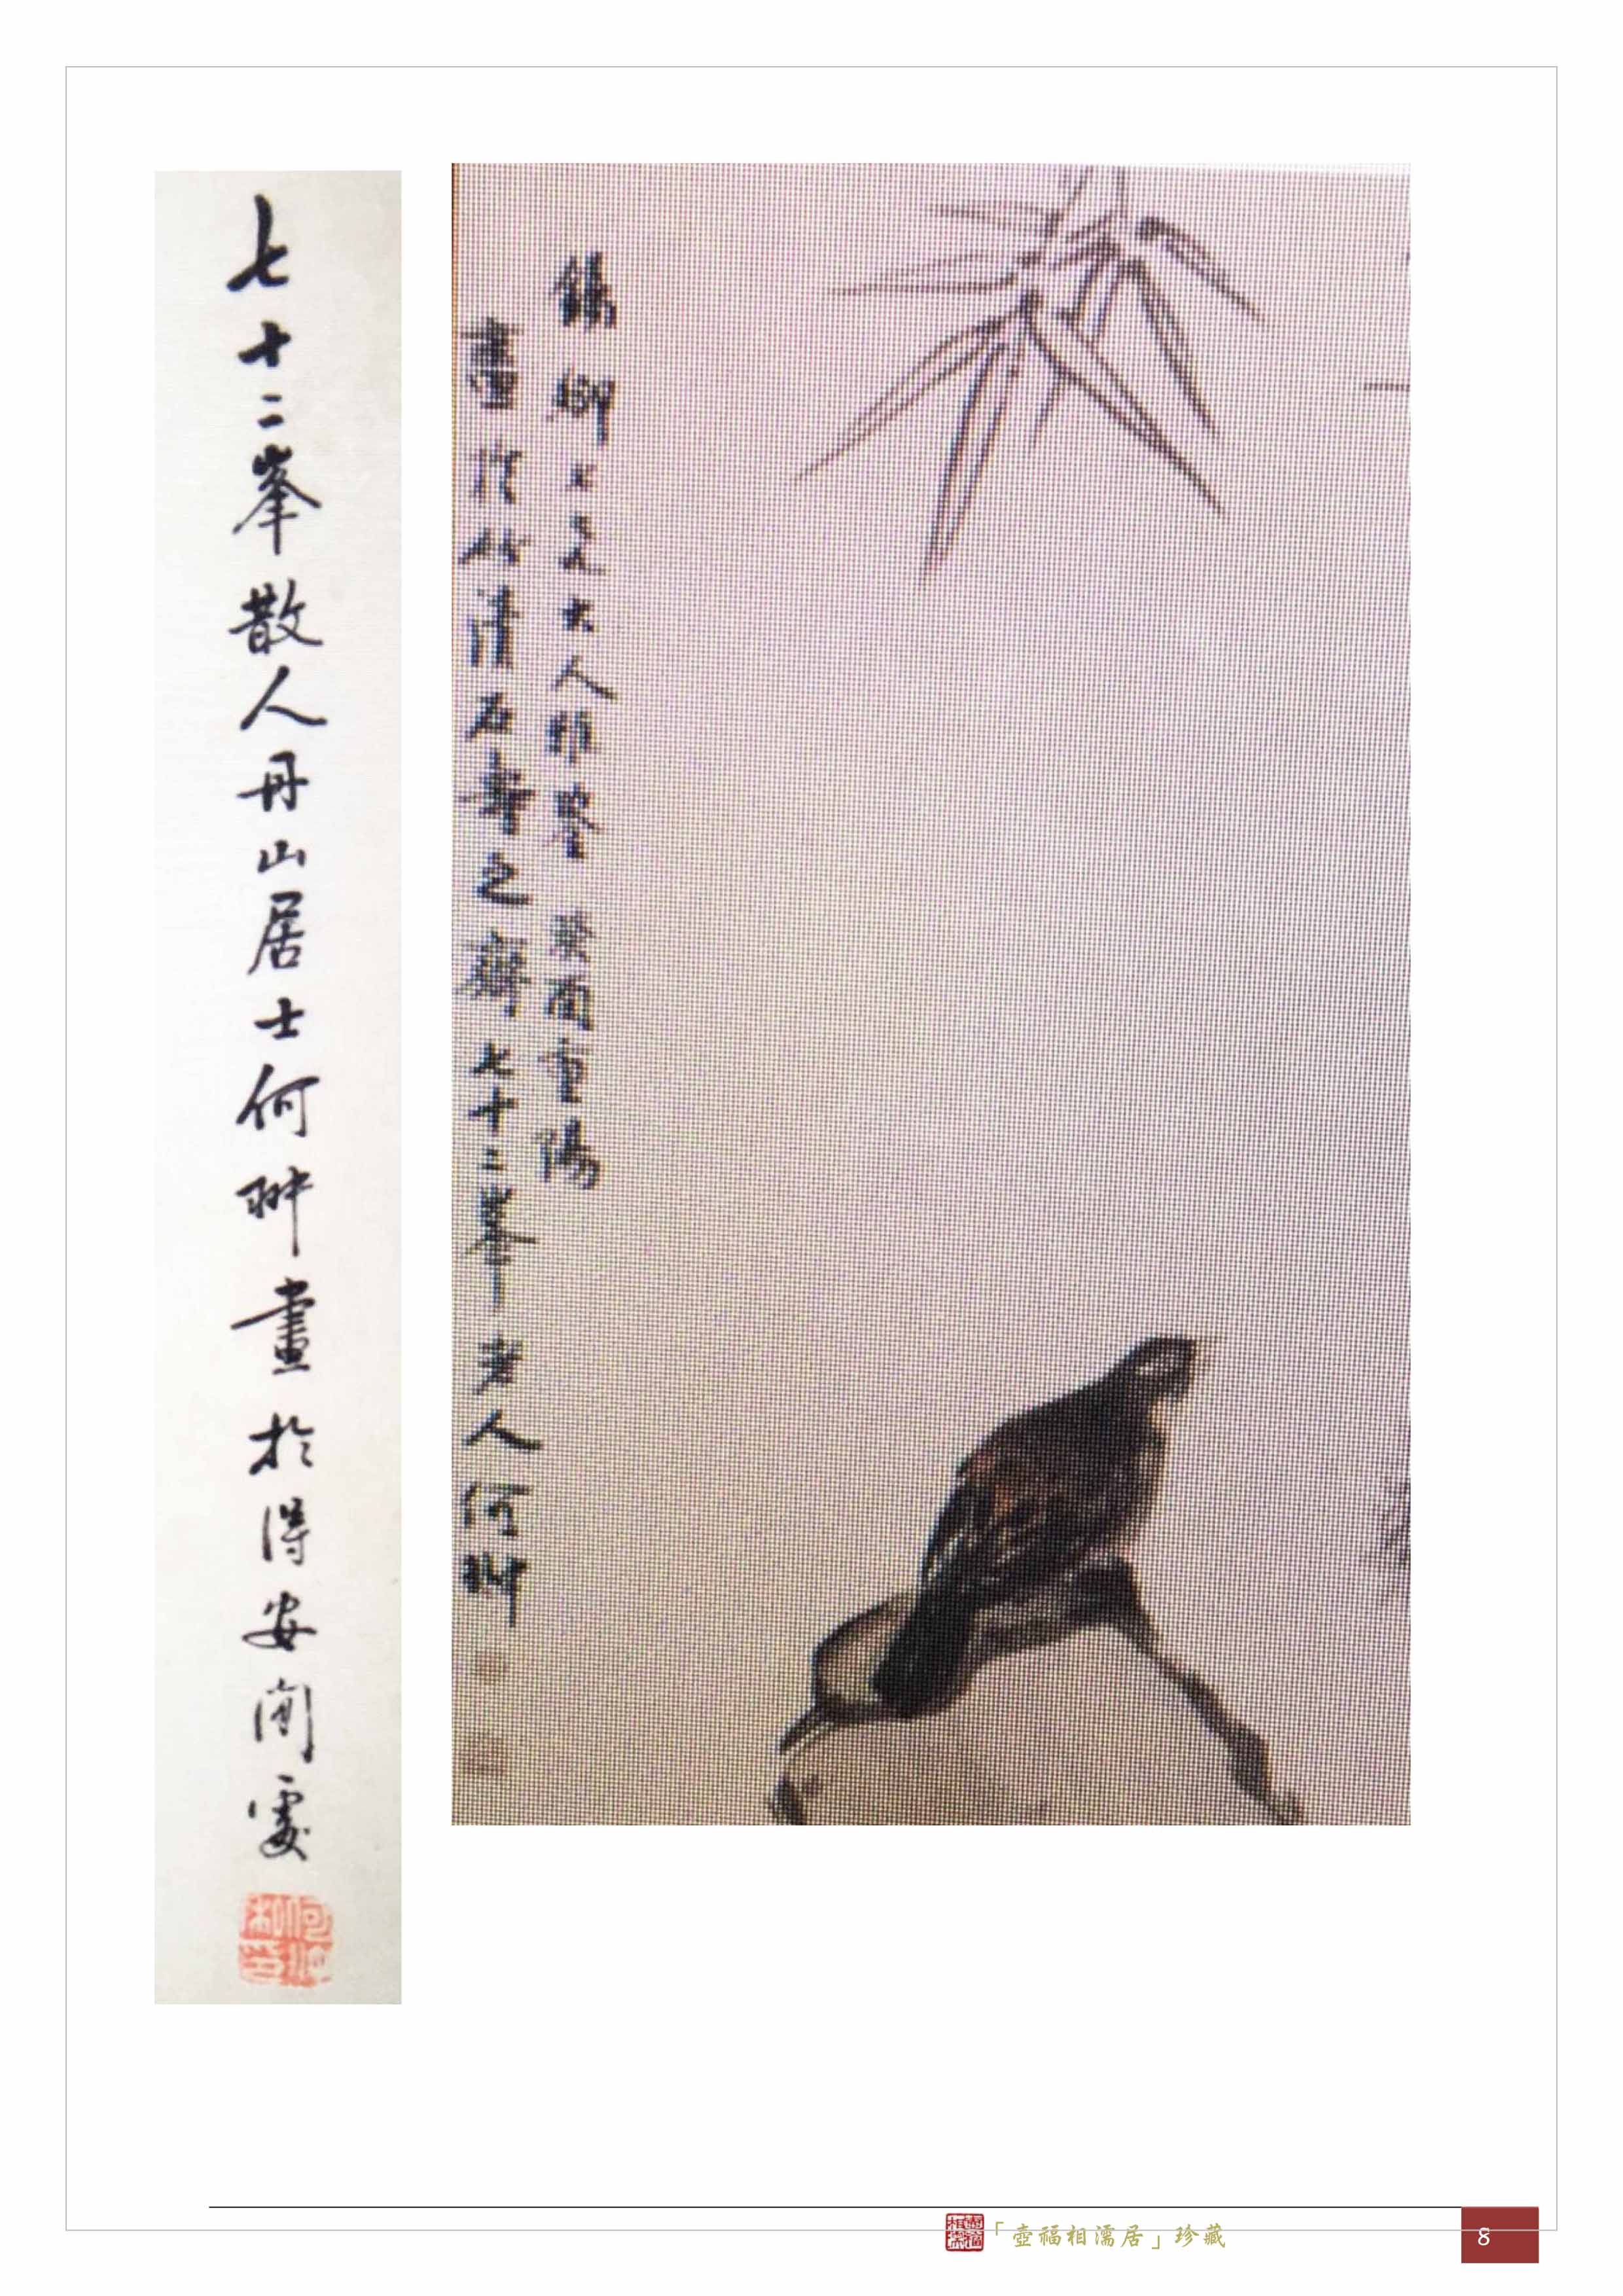 七十二峯散人丹山居士何翀畫於得安閒處
錫卿兄大人雅鑒 癸酉重陽
畫於竹清石壽之齋七十二峯老人何翀
「壺福相濡居」珍藏
8